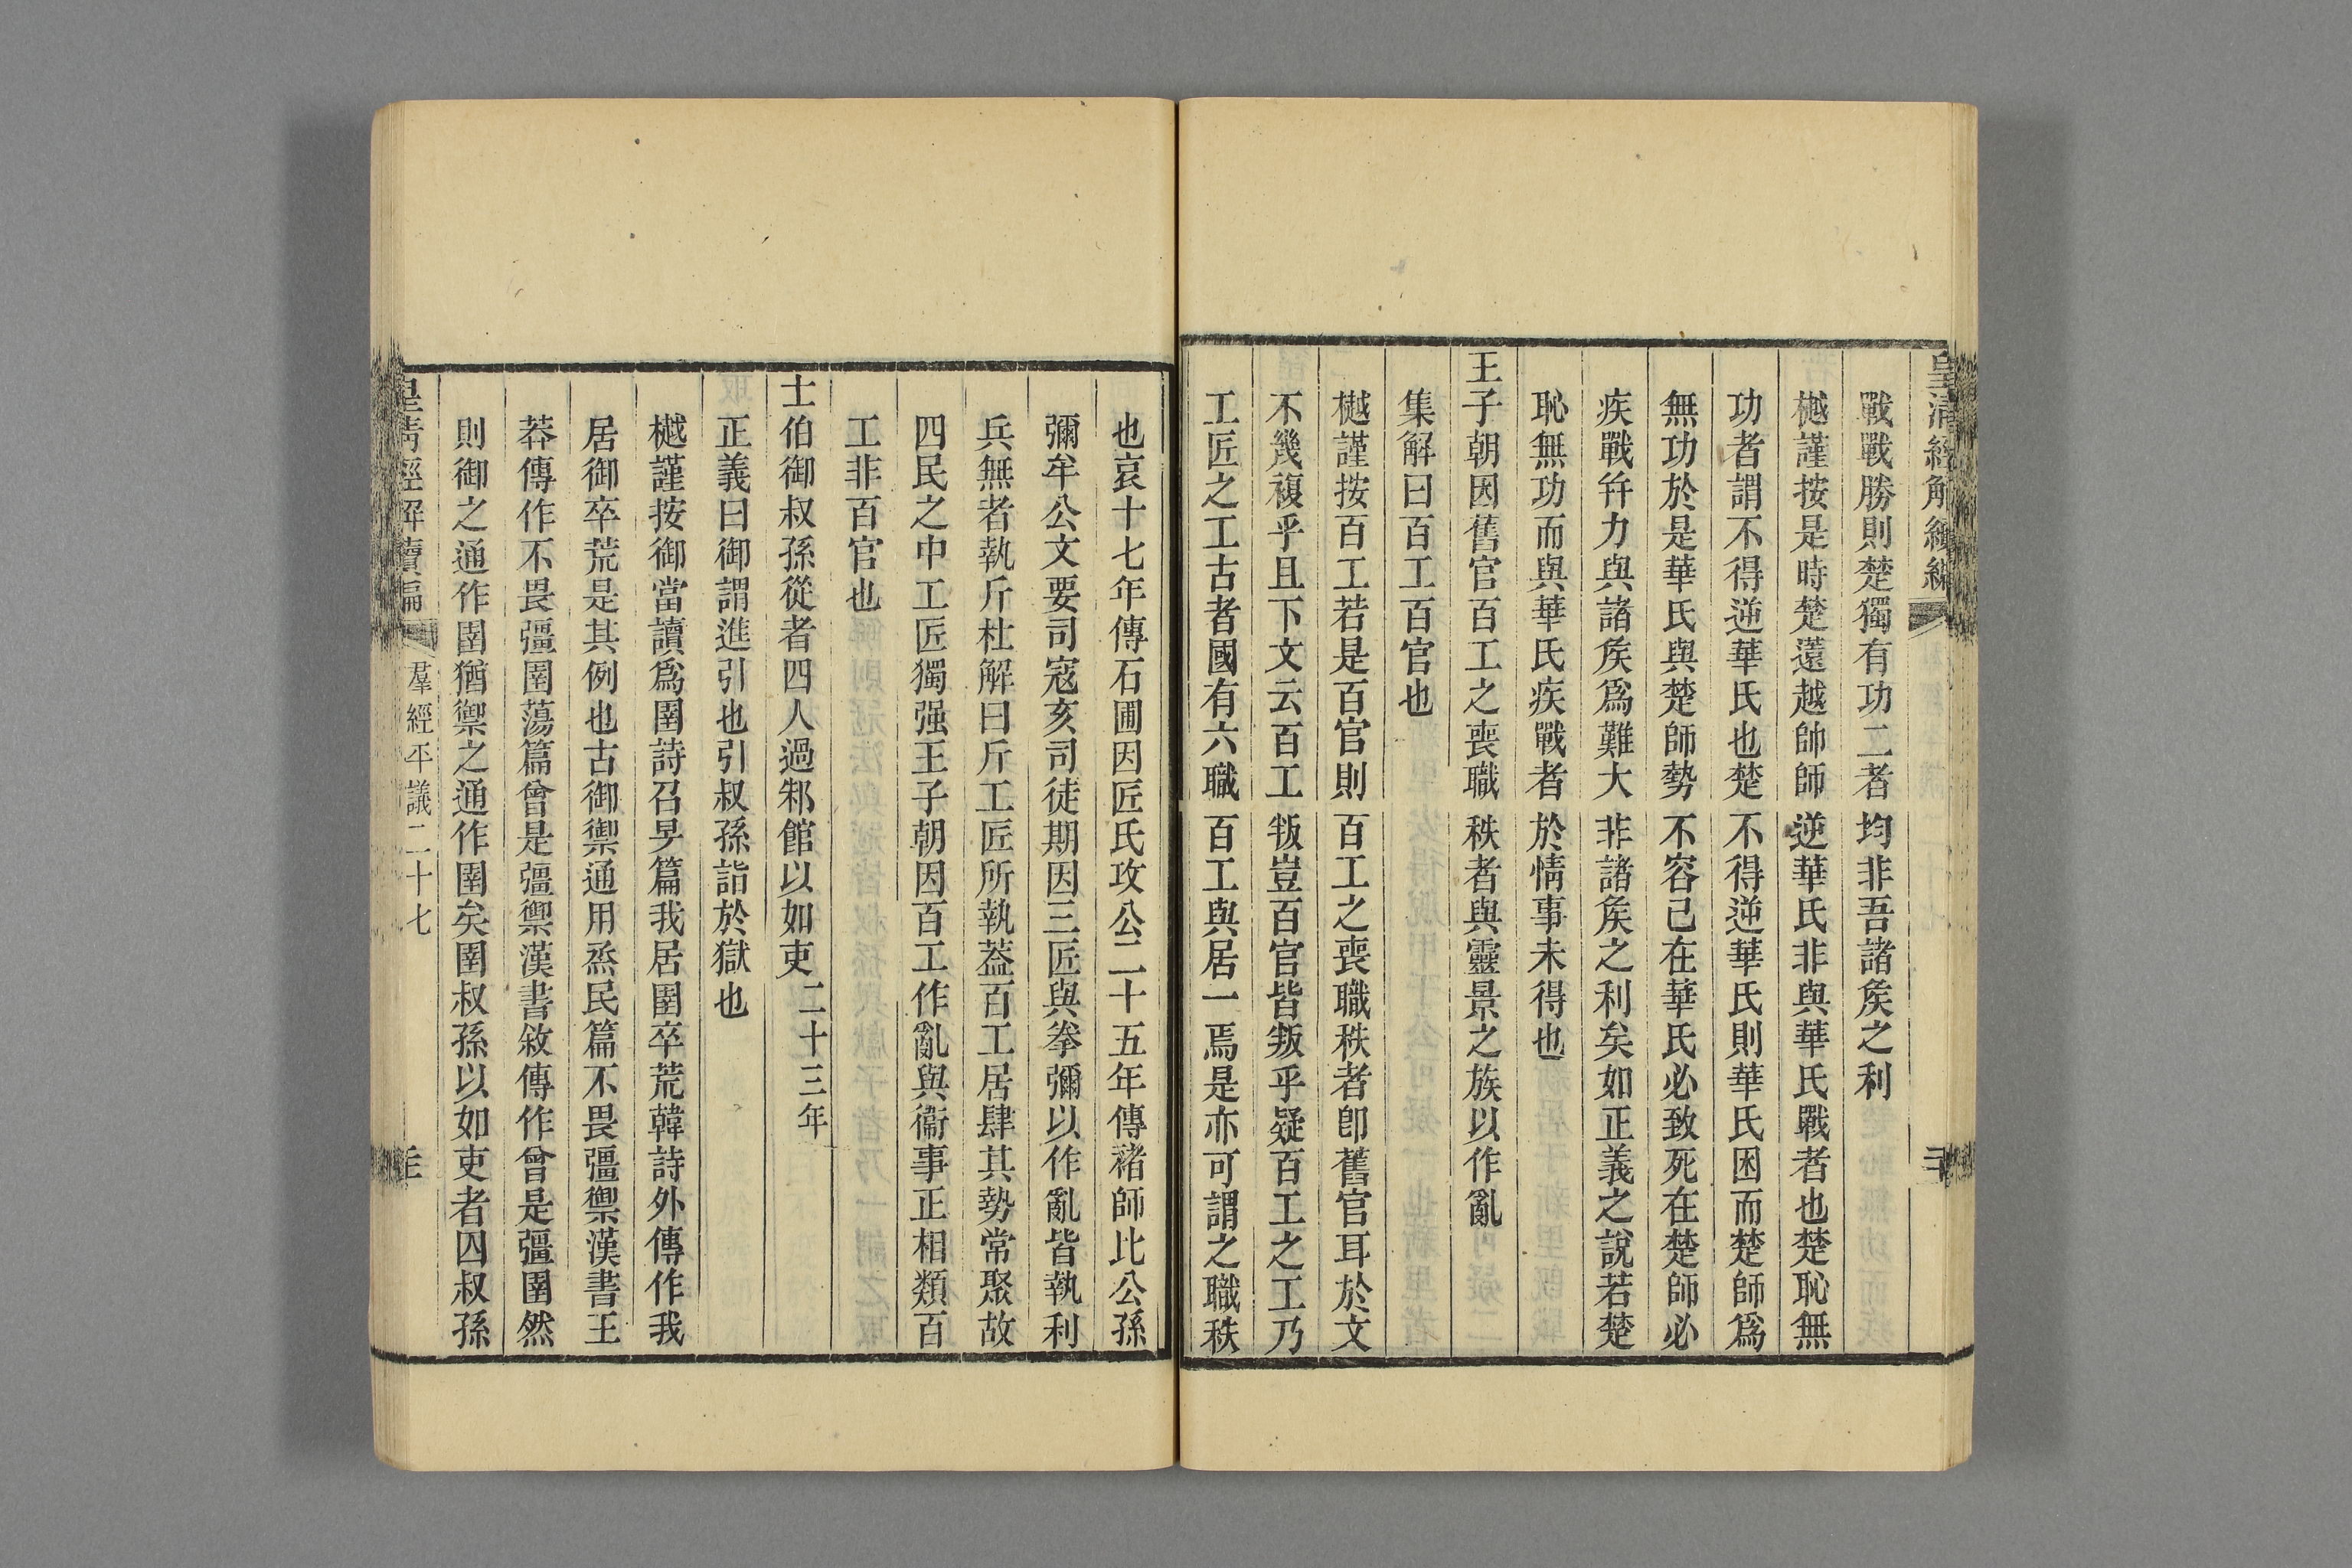 皇清經解續編
戰戰勝則楚獨有功二者均非吾諸矦之利
樾謹按是時楚薳越帥師逆華氏非與華氏戰者也楚恥無
功者謂不得逆華氏也楚不得逆華氏則華氏困而楚師爲
無功於是華氏與楚師勢不容已在華氏必致死在楚師必
疾戰幷力與諸矦爲難大非諸矦之利矣如正義之說若楚
恥無功而與華氏疾戰者於情事未得也
王子朝因舊官百工之喪職秩者與靈景之族以作亂
集解曰百工百官也
樾謹按百工若是百官則百工之喪職秩者卽舊官耳於文
不幾複乎且下文云百工叛豈百官皆叛乎疑百工之工乃
工匠之工古者國有六職百工與居一焉是亦可謂之職秩
也哀十七年傳石圃因匠氏攻公二十五年傳褚師比公孫
彌牟公文要司寇亥司徒期因三匠與拳彌以作亂皆執利
兵無者執斤杜解曰斤工匠所執葢百工居肆其勢常聚故
四民之中工匠獨强王子朝因百工作亂與衞事正相類百
工非百官也
士伯御叔孫從者四人過邾館以如吏二十三年
正義曰御謂進引也引叔孫詣於獄也
樾謹按御當讀爲圉詩召旻篇我居圉卒荒韓詩外傳作我
居御卒荒是其例也古御禦通用烝民篇不畏彊禦漢書王
莽傳作不畏彊圉蕩篇曾是彊禦漢書敘傳作曾是彊圉然
則御之通作圉猶禦之通作圉矣圉叔孫以如吏者囚叔孫
皇清經解續編
羣經平議二十七